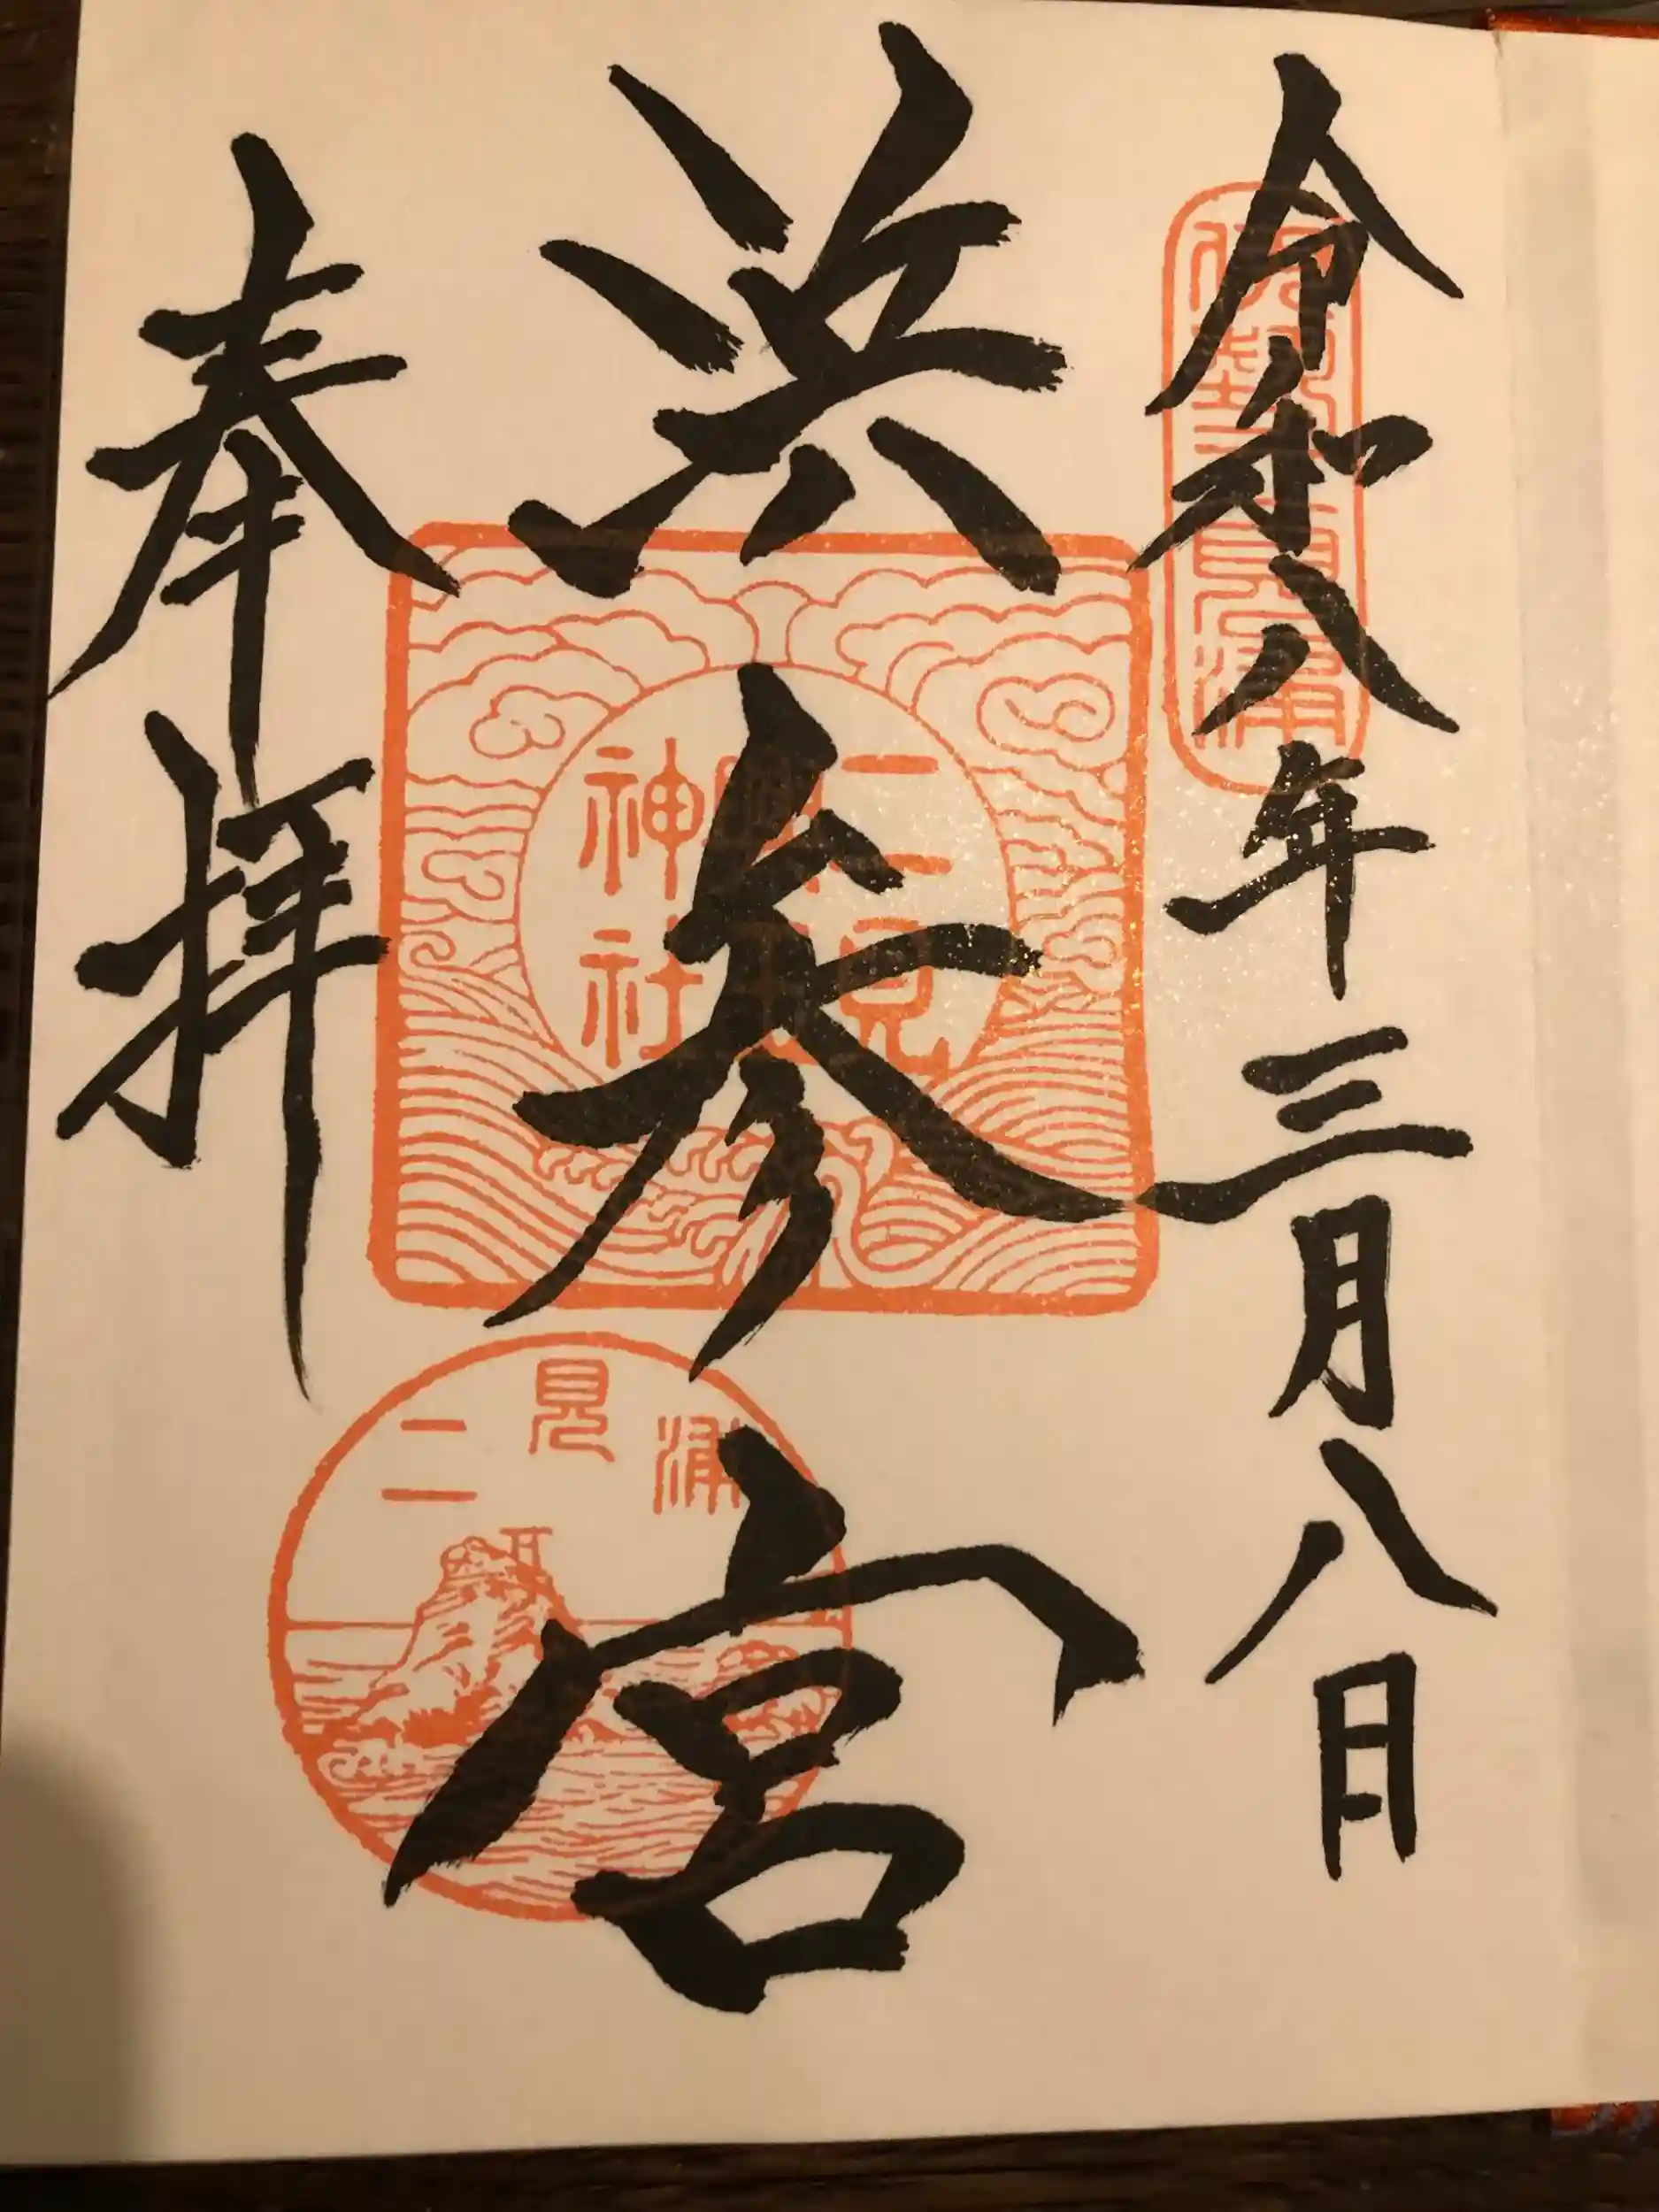 令和八年三月八日
伊勢二見浦
浜参宮
二見
興玉
神社
二見浦
奉拝